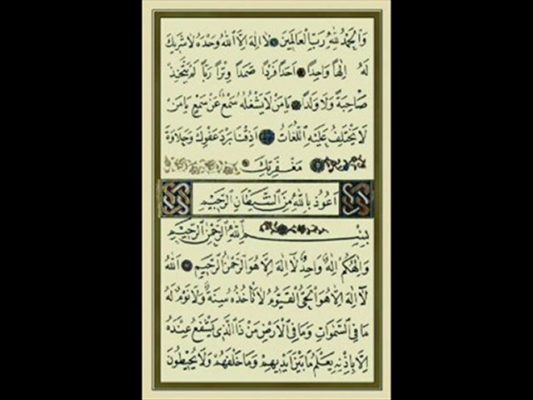 وَالْحَمْدُ لِلّٰهِ رَبِّ الْعَالَمِينَ لَا اِلٰهَ اِلَّا اللّٰهُ وَحْدَهُ لَا شَرِيكَ
لَهُ اِلٰهًا وَاحِدًا اَحَدًا فَرْدًا صَمَدًا وِتْرًا رَبًّا لَمْ يَتَّخِذْ
صَاحِبَةً وَلَا وَلَدًا يَا مَنْ لَا يَشْغَلُهُ سَمْعٌ عَنْ سَمْعٍ يَا مَنْ
لَا يَخْتَلِفُ عَلَيْهِ اللُّغَاتُ اَذِقْنَا بَرْدَ عَفْوِكَ وَحَلَاوَةَ
مَغْفِرَتِكَ
اَعُوذُ بِاللّٰهِ مِنَ الشَّيْطَانِ الرَّجِيمِ
بِسْمِ اللّٰهِ الرَّحْمٰنِ الرَّحِيمِ
وَاِلٰهُكُمْ اِلٰهٌ وَاحِدٌ لَا اِلٰهَ اِلَّا هُوَ الرَّحْمٰنُ الرَّحِيمُ اَللّٰهُ
لَا اِلٰهَ اِلَّا هُوَ الْحَيُّ الْقَيُّومُ لَا تَأْخُذُهُ سِنَةٌ وَلَا نَوْمٌ لَهُ
مَا فِي السَّمٰوَاتِ وَمَا فِي الْاَرْضِ مَنْ ذَا الَّذِي يَشْفَعُ عِنْدَهُ
اِلَّا بِاِذْنِهِ يَعْلَمُ مَا بَيْنَ اَيْدِيهِمْ وَمَا خَلْفَهُمْ وَلَا يُحِيطُونَ